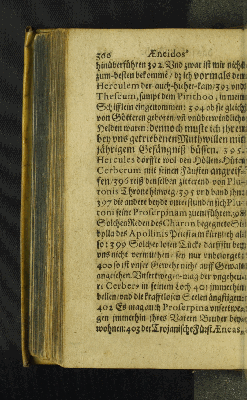 300 Æneidos
hinüberführen 392. Und zwar ist mir nicht
zum besten bekomme / dz ich vormals den
Herculem der auch hieher kam / 393 und
Theseum, sampt dem Pirithoo, in mein
Schifflein eingenommen: 394 ob sie gleich
von Götteren geboren uñ unüberwindliche
Helden waren: dennoch muste ich ihren
bey uns getriebenen Muthwillen mit
jährigem Gefängniß büssen. 395
Hercules dorffte wol den Höllen-Hund
Cerberum mit seinen Fäusten angreif-
fen / 396 riß denselben zitterend von Plu-
tonis Throne hinweg: 395 und band ihn:
397 die andere beyde unterstunden sich Plu-
toni seine Proserpinam zu entführen. 398
Solchen Reden des Charon begegnete Si-
bylla des Apollinis Priesterin kürtzlich al-
so: 399 Solcher losen Tück darffstu bey
uns nicht vermuthen: sey nur unbesorget:
400 so ist unser Gewehr nicht auff Gewalt
angesehen. Unsert wegen mag der ungeheu-
re Cerberus in seinem Loch 401 immerhin
bellen / und die krafftlosen Seelen ängstigen:
402 Es mag auch Proserpina unsertwe-
gen immerhin ihres Vatern Bruder bey-
wohnen: 403 der Trojanische Fürst Æneas,